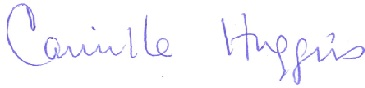 Camille Huggins